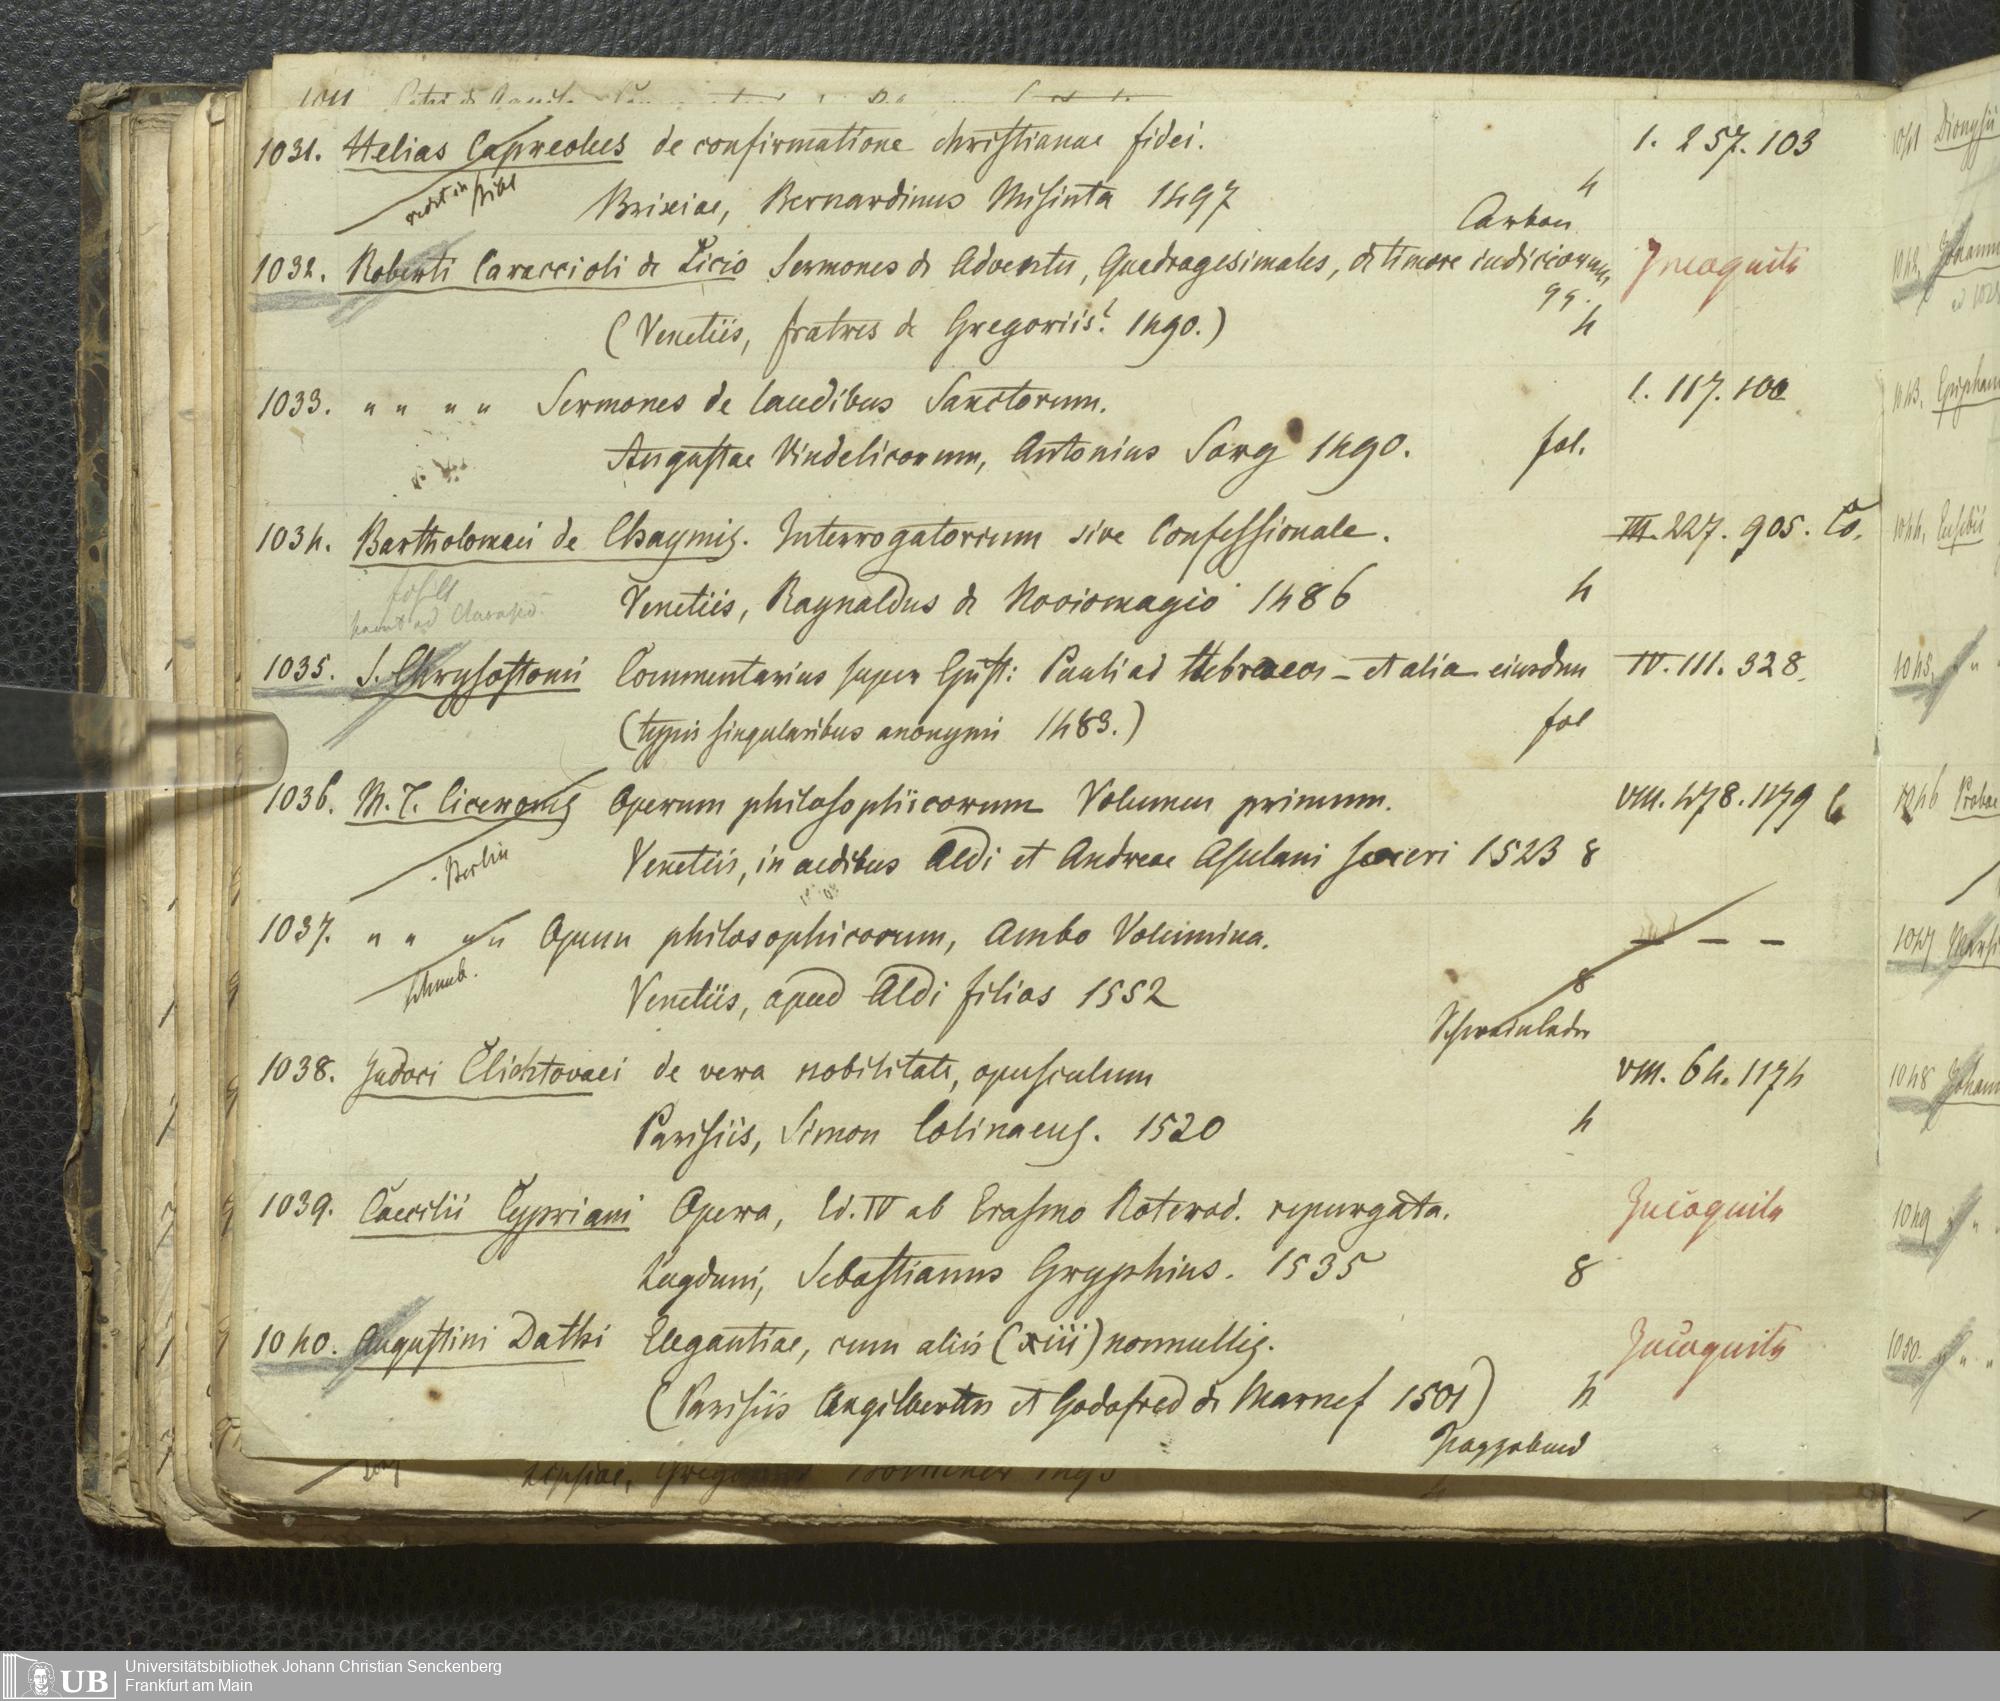 1031. Helias Capreolus de confirmatione christianae fidei. 1. 257. 103
Brixiae, Bernardinus Misinta 1497 4
1032. Roberti Caraccioli de Licio Sermones de Adventu, Quadragesimales, de timore iudiciorum Incognita
(Venetiis, fratres de Gregoriis? 1490.) 4
1033. " " " " Sermones de laudibus Sanctorum. 1. 117. 100
Augustae Vindelicorum, Antonius Sorg 1490. fol.
1034. Bartholomaei de Chaymis. Interrogatorium sive Confessionale. III. 227. 905. Co.
Venetiis, Raynaldus de Noviomagio 1486 4
1035. S. Chrysostomi Commentarius super Epist: Pauli ad Hebraeos – et alia eiusdem IV. 111. 328.
(typis singularibus anonymi 1483.) fol
1036. M. T. Ciceronis Operum philosophicorum Volumen primum. VIII. 478. 1179
Berlin Venetiis, in aedibus Aldi et Andreae Asulani soceri 1523 8
1037. " " " " Operum philosophicorum, Ambo Volumina. – – –
Schwab. Venetiis, apud Aldi filios 1552 8
Schweinsleder
1038. Judoci Clichtovaei de vera nobilitate, opusculum VIII. 64. 1174
Parisiis, Simon Colinaeus. 1520 4
1039. Caecilii Cypriani Opera, Ed. IV ab Erasmo Roterod. repurgata. Incognita
Lugduni, Sebastianus Gryphius. 1535 8
1040. Augustini Dathi Elegantiae, cum aliis (xiii) nonnullis. Incognita
(Parisiis Angilbertus et Godofred de Marnef 1501) 4
Pappband
Universitätsbibliothek Johann Christian Senckenberg
Frankfurt am Main
UB